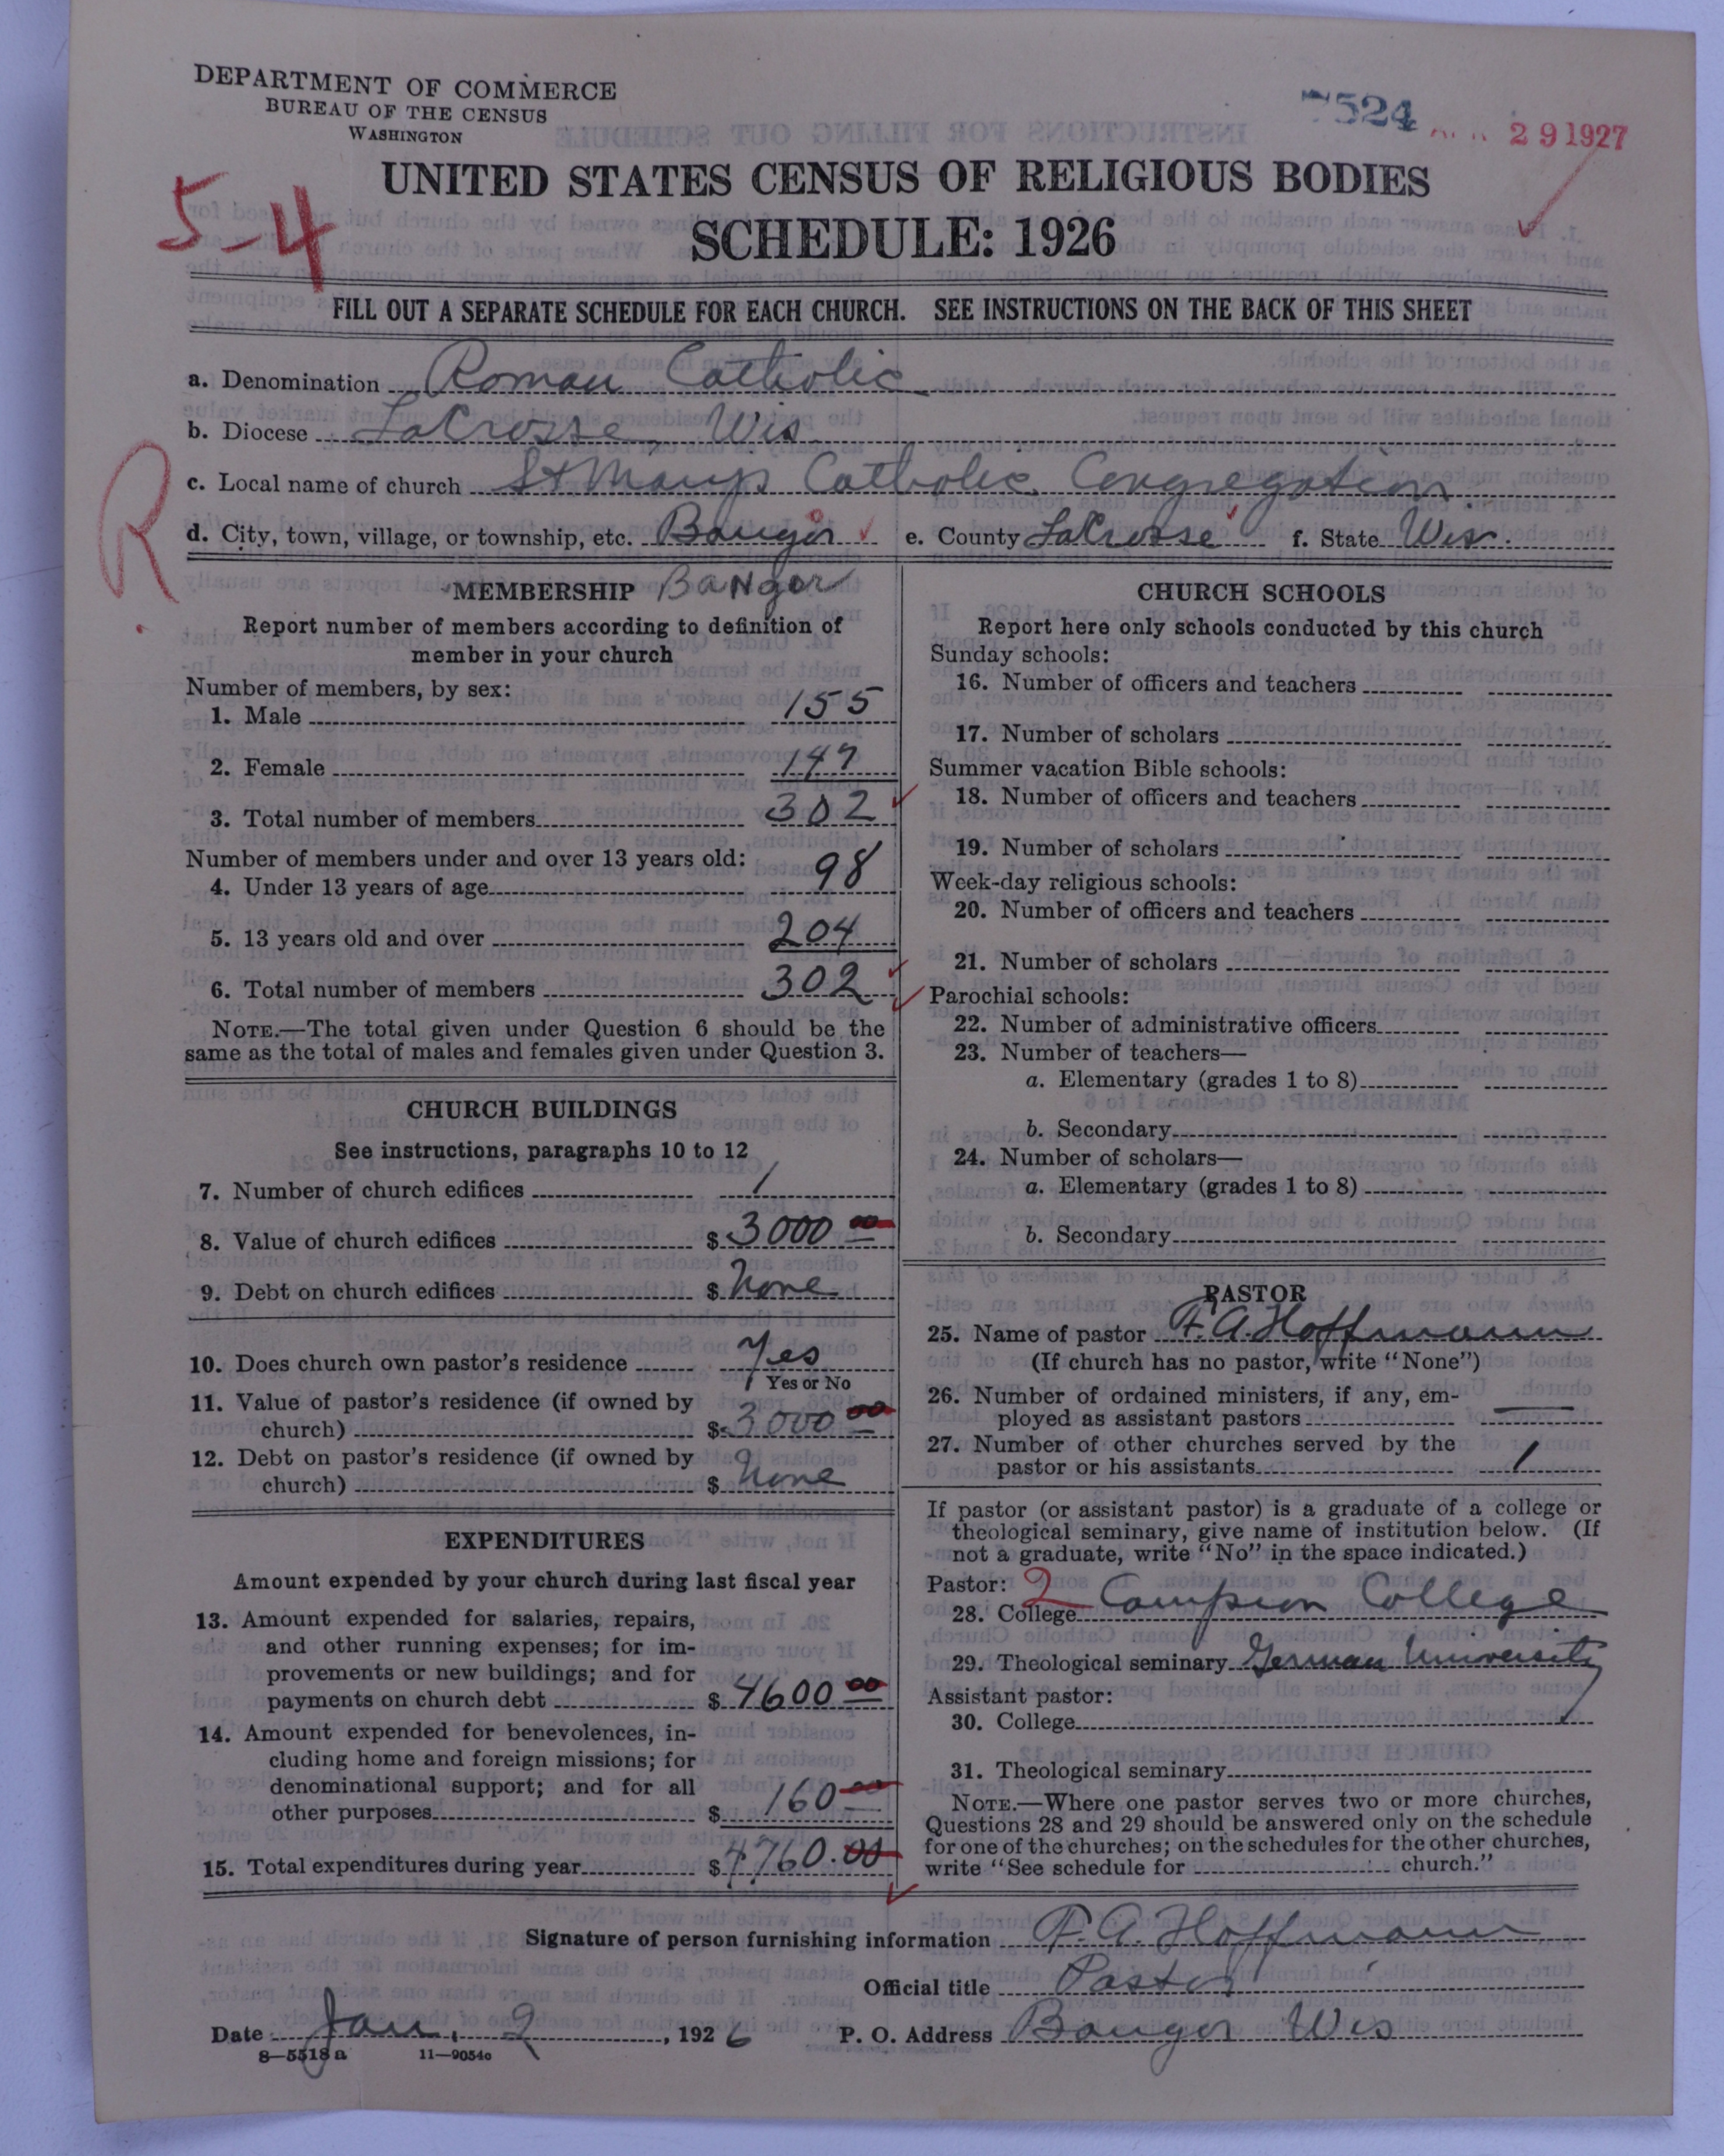 DEPARTMENT OF COMMERCE
BUREAU OF THE CENSUS
WASHINGTON
7524
29 1927
UNITED STATES CENSUS OF RELIGIOUS BODIES
SCHEDULE: 1926
5-4
FILL OUT A SEPARATE SCHEDULE FOR EACH CHURCH. SEE INSTRUCTIONS ON THE BACK OF THIS SHEET
a. Denomination Roman Catholic
b. Diocese LaCrosse, Wis
R
c. Local name of church St Marys Catholic Congregation
d. City, town, village, or township, etc. Bangor e. County LaCrosse f. State Wis.
MEMBERSHIP Bangor
Report number of members according to definition of
member in your church
Number of members, by sex:
1. Male 155
2. Female 147
3. Total number of members 302
Number of members under and over 13 years old:
4. Under 13 years of age 98
5. 13 years old and over 204
6. Total number of members 302
NOTE.—The total given under Question 6 should be the
same as the total of males and females given under Question 3.
CHURCH BUILDINGS
See instructions, paragraphs 10 to 12
7. Number of church edifices 1
8. Value of church edifices $ 3000 00
9. Debt on church edifices $ None
10. Does church own pastor's residence Yes
Yes or No
11. Value of pastor's residence (if owned by
church) $ 3000 00
12. Debt on pastor's residence (if owned by
church) $ None
EXPENDITURES
Amount expended by your church during last fiscal year
13. Amount expended for salaries, repairs,
and other running expenses; for im-
provements or new buildings; and for
payments on church debt $ 4600 00
14. Amount expended for benevolences, in-
cluding home and foreign missions; for
denominational support; and for all
other purposes $ 160 00
15. Total expenditures during year $ 4760.00
CHURCH SCHOOLS
Report here only schools conducted by this church
Sunday schools:
16. Number of officers and teachers
17. Number of scholars
Summer vacation Bible schools:
18. Number of officers and teachers
19. Number of scholars
Week-day religious schools:
20. Number of officers and teachers
21. Number of scholars
Parochial schools:
22. Number of administrative officers
23. Number of teachers—
a. Elementary (grades 1 to 8)
b. Secondary
24. Number of scholars—
a. Elementary (grades 1 to 8)
b. Secondary
PASTOR
25. Name of pastor F. A. Hoffmann
(If church has no pastor, write "None")
26. Number of ordained ministers, if any, em-
ployed as assistant pastors —
27. Number of other churches served by the
pastor or his assistants 1
If pastor (or assistant pastor) is a graduate of a college or
theological seminary, give name of institution below. (If
not a graduate, write "No" in the space indicated.)
Pastor: 2
28. College Campion College
29. Theological seminary German University
Assistant pastor:
30. College
31. Theological seminary
NOTE.—Where one pastor serves two or more churches,
Questions 28 and 29 should be answered only on the schedule
for one of the churches; on the schedules for the other churches,
write "See schedule for church."
Signature of person furnishing information F. A. Hoffmann
Official title Pastor
Date Jan. 2, 1926 P. O. Address Bangor Wis
8—5518a 11—9054c